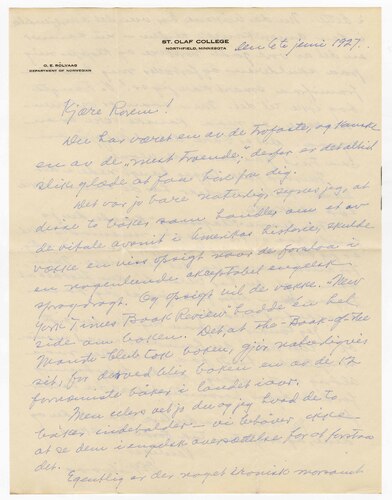 ST. OLAF COLLEGE
NORTHFIELD, MINNESOTA
O. E. RÖLVAAG
DEPARTMENT OF NORWEGIAN
den 6te juni 1927.
Kjære Rovus!
Du har været en av de trofaste, og kanske
en av de "mest troende"; derfor er det altid
slik glæde at faa brev fra dig.
Det var jo bare naturlig, synes jeg, at
disse to bøker som handler om et av
de vitale avsnit i Amerikas historie, skulde
vække en viss opsigt naar de forelaa i
en nogenlunde akceptabel engelsk
sprogdragt. Og opsigt vil de vække. New
York Times Book Review hadde en hel
side om boken. Det, at The Book-of-the
Month-Club tok boken, gjør naturligvis
sit, for derved blir boken en av de 12
fornemste bøker i landet iaar.
Men ellers vet jo du og jeg hvad de to
bøker indeholder — vi behøver ikke
at se dem i engelsk oversættelse for at forstaa
det.
Egentlig er der noget ironisk morsomt